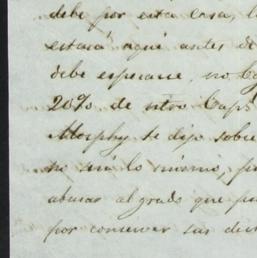 debe por esta Casa, l
estará aquí antes de
debe esperarse, no
20% de ntro Capl
Morphy te dijo sobre
no será lo mismo, p
abusar al grado que p
por conservar sus